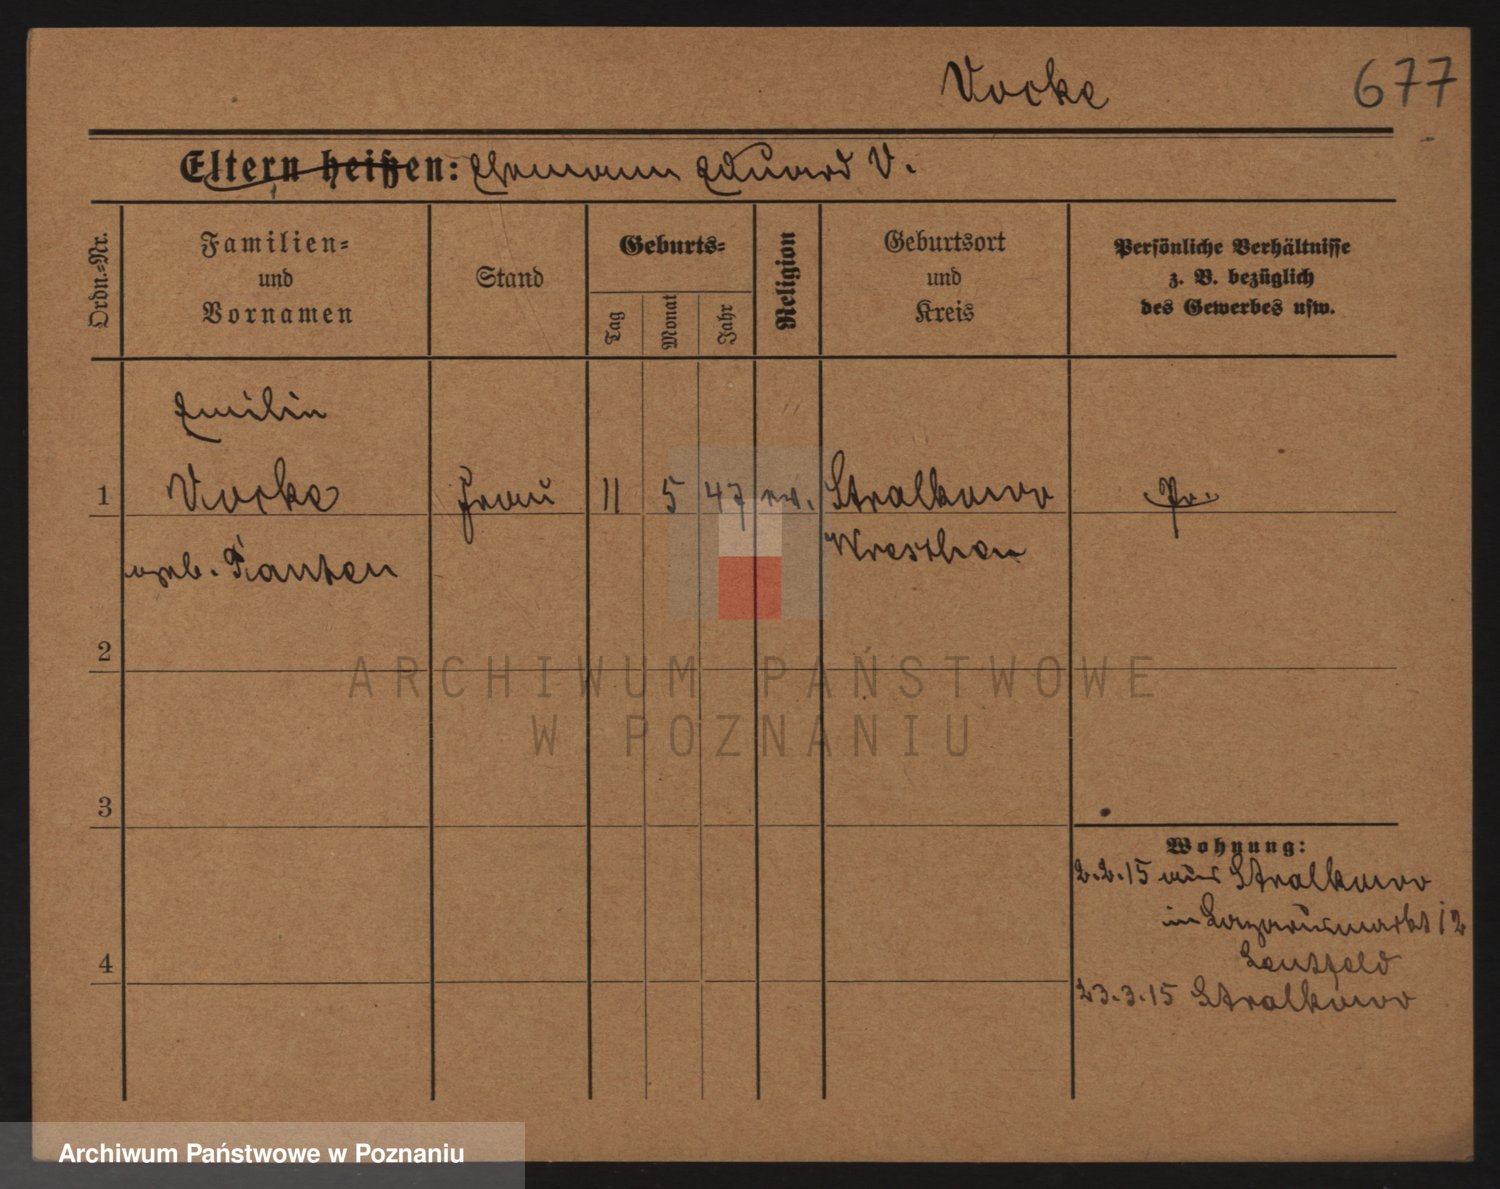 Vocke 677
Eltern heißen: Ehemann Eduard V.
Ordn.=Nr.
Familien=
und
Vornamen
Stand
Geburts=
Tag
Monat
Jahr
Religion
Geburtsort
und
Kreis
Persönliche Verhältnisse
z. B. bezüglich
des Gewerbes usw.
Emilie
1 Vocke Frau 11 5 47 ev. Stralkowo Pr.
geb. Wreschen
2
ARCHIWUM PAŃSTWOWE
W POZNANIU
3
Wohnung:
2.2.15 aus Stralkowo
in Lazarusmarkt 12
4
23.3.15 Stralkowo
Archiwum Państwowe w Poznaniu